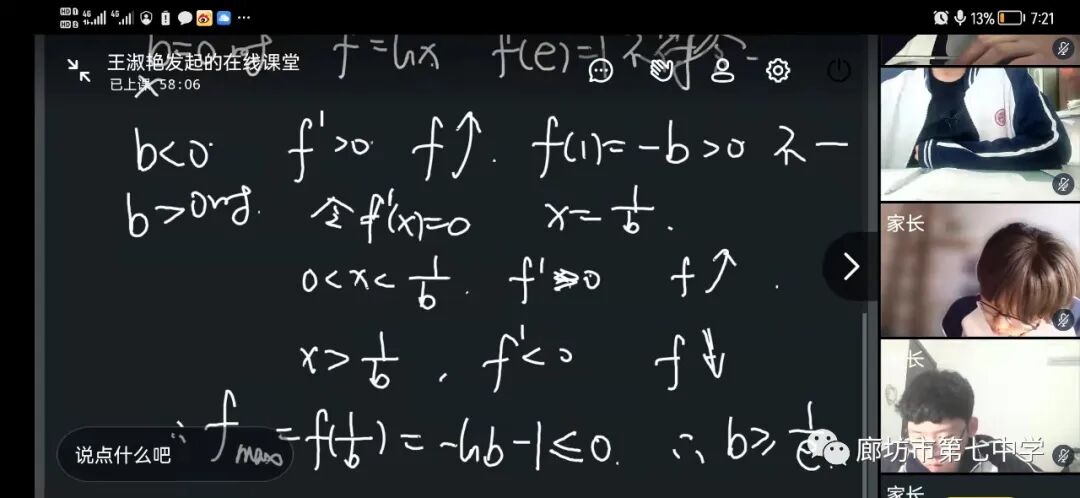 13% 7:21
b=0时 f=lnx f(e)=1不符合
王淑艳发起的在线课堂
已上课 58:06
b<0 f'>0 f↑. f(1)=-b>0 不一
b>0时. 令f'(x)=0 x=1/b.
0<x<1/b. f'>0 f↑.
x>1/b, f'<0 f↓
∴ fmax=f(1/b)=-lnb-1≤0. ∴ b≥1/e.
说点什么吧
家长
家长
家长
廊坊市第七中学